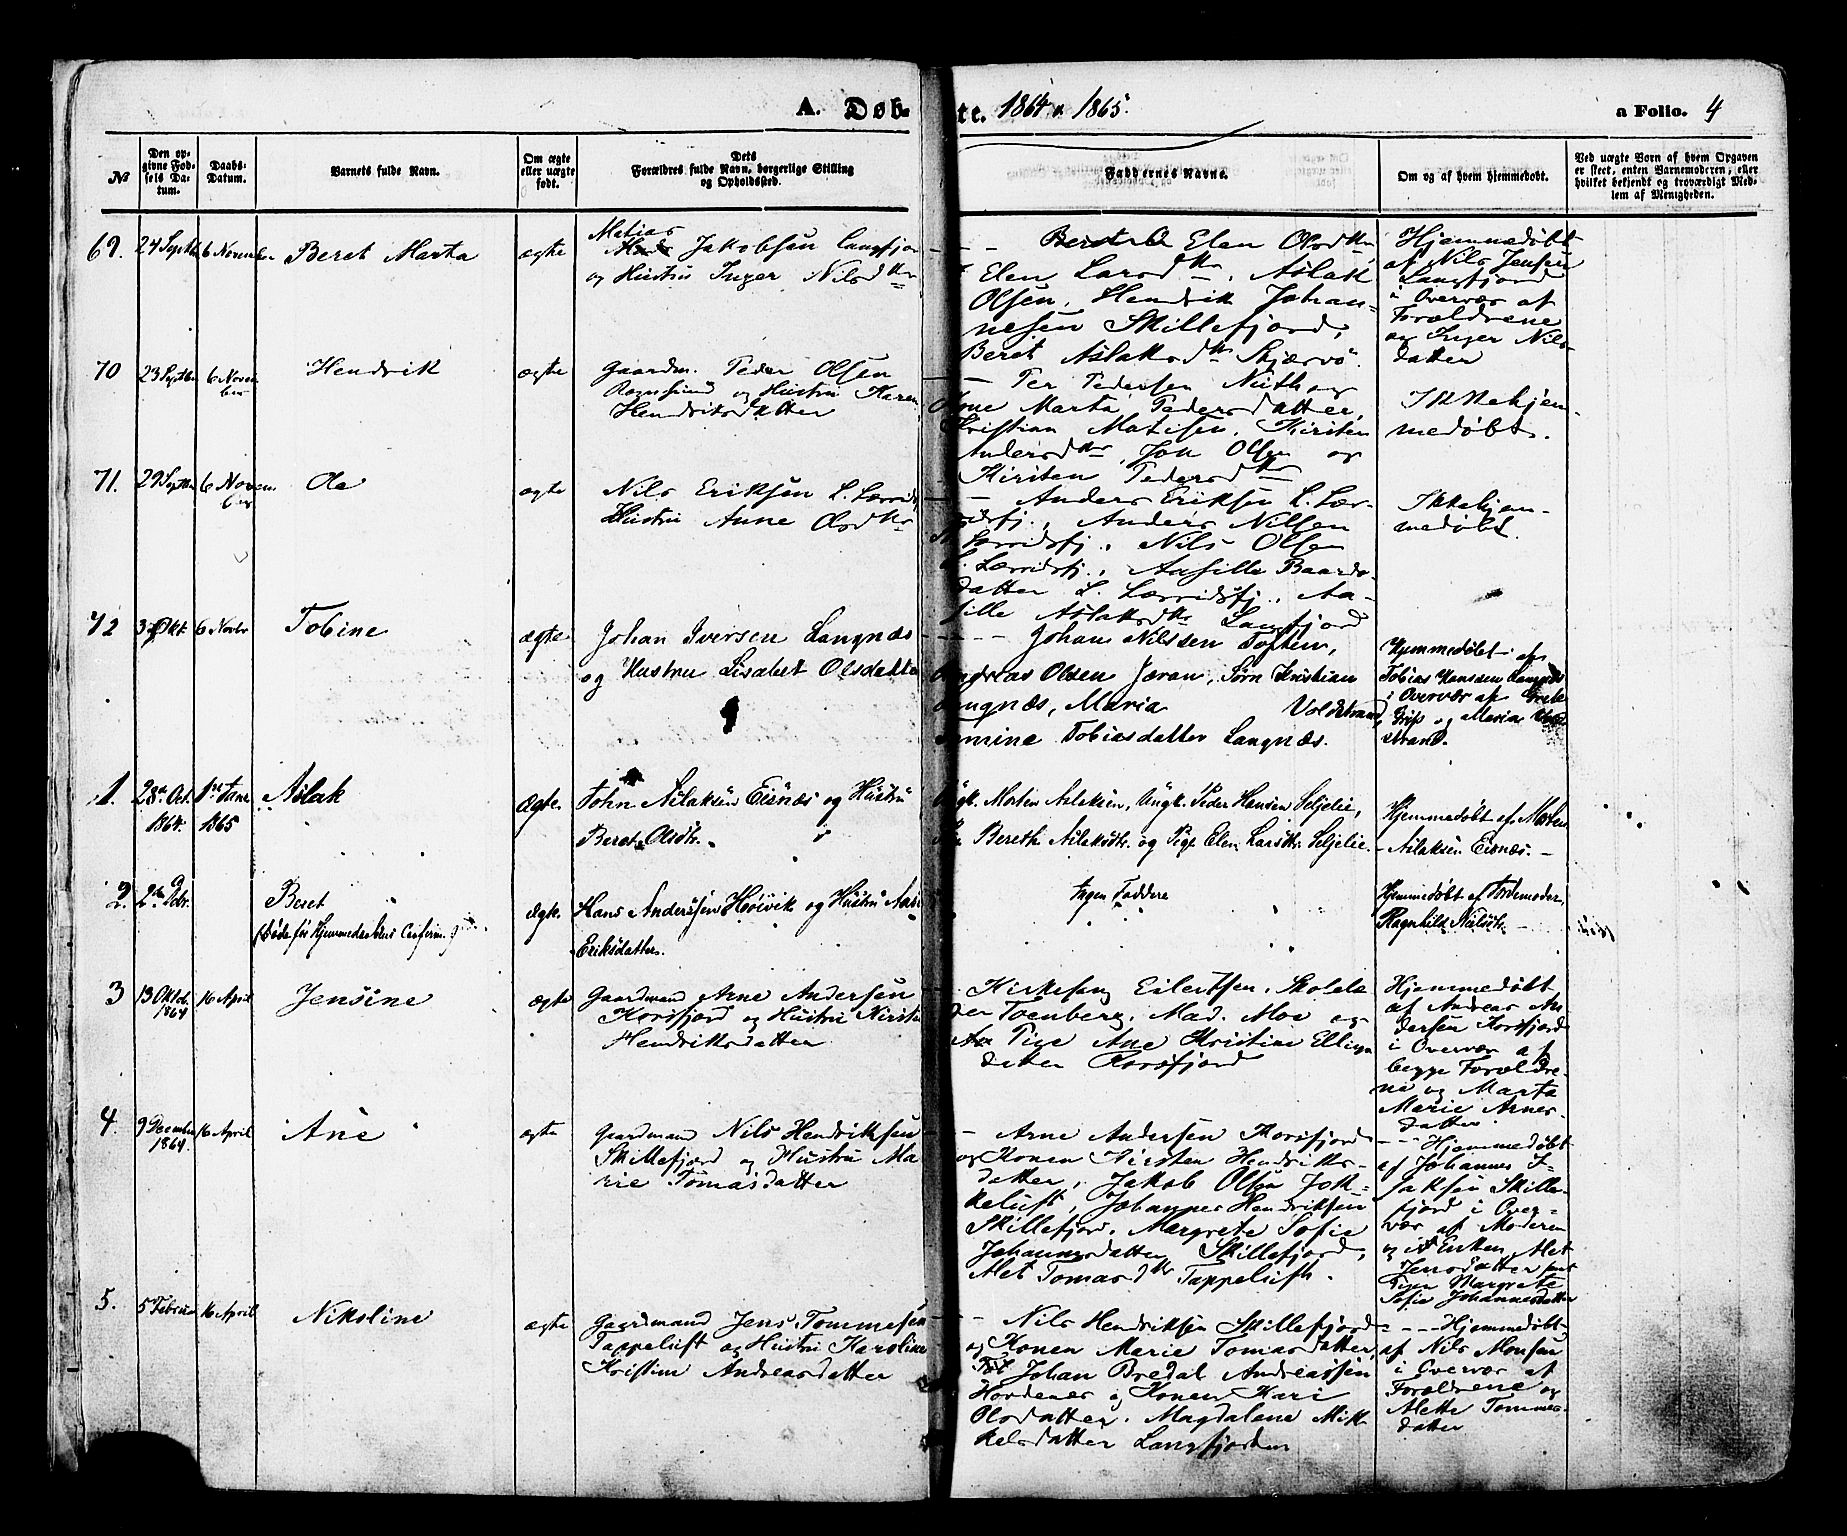 A. Døb-
te. 1864 & 1865.
a Folio. 4
No
Den op-
givne Fød-
sels Da-
tum.
Daabs-
Datum.
Barnets fulde Navn.
Om ægte
eller uægte
født.
Dets
Forældres fulde Navn, borgerlige Stilling
og Opholdssted.
Faddernes Navne.
Om og af hvem hjemmedøbt.
Ved uægte Børn af hvem Opgaven
er skeet, enten Barnemoderen, eller
hvilket bekjendt og troværdigt Med-
lem af Menigheden.
69. 24 Septbr 6 November Beret Marta ægte
Matias
Jakobsen Langfjor
og Hustru Inger Nilsdtr
Elen Olsdtr
Elen Larsdtr, Aslak
Olsen, Hendrik Johan-
nesen Skillefjord,
Beret Aslaksdtr Skjærvö.
Hjemmedøbt
af Nils Jensen
Langfjord
i Overvær af
Forældrene
og Inger Nils-
datter
70 23 Septbr 6 Novem
ber
Hendrik ægte
Gaardm. Peder Olsen
Rognsund og Hustru Karen
Hendriksdatter
Per Pedersen og
Kone Marta Pedersdatter,
Kristian Matisen, Kirsten
Andersdtr, Jon Olsen og
Kirsten Pedersdtr
Ikkehjem-
medøbt.
71. 29 Septbr 6 Novem
ber
Ole ægte
Nils Eriksen L. Lerrisfj
Hustru Anne Olsdtr
Anders Eriksen L. Ler-
risfj., Anders Nilsen
Lerrisfj., Nils Olsen
L. Lerrisfj., Aasille Baards-
datter L. Lerrisfj., Aa-
sille Aslaksdtr Langfjord
Ikkehjem-
medøbt.
72 3 Okt. 6 Novbr Tobine ægte
Johan Iversen Langnæs
og Hustru Lisabet Olsdatter
Johan Nilssen Toften,
Andreas Olsen Jæran, Sørn Kristian
Langnæs, Maria Voldstrand,
Tomine Tobiasdatter Langnæs.
Hjemmedøbt af
Tobias Hanssen Langnæs
i Overvær af Grete
Grip og Maria Vold
strand.
1. 28de Oct.
1864.
1ste Janr
1865
Aslak Ægte.
John Aslaksen Eisnæs og Hustru
Beret Olsdtr.
Ungk. Morten Aslaksen, Ungk. Peder Hansen Seljelie,
Bereth Aslaksdtr. og Pige Elen Larsdtr. Seljelie.
Hjemmedøbt af Morten
Aslaksen Eisnæs.
2. 2den Febr.
Beret
(Døde før Hjemmedaabens Confirm.)
Ægte.
Hans Anderssen Høivik og Hustru
Eriksdatter.
Ingen Faddere
Hjemmedøbt af Jordemoder
Ragnhild Nilsdtr.
3 13 Oktob.
1864
16 April Jensine ægte
Gaardmand Arne Andersen
Korsfjord og Hustru Kirsten
Hendriksdatter
Kirkesang Eilertsen, Skolelæ
rer Tornberg, Mad. Moe og
Pige Ane Kristine Ellings
datter Korsfjord
Hjemmedøbt
af Andreas An
dersen Korsfjord
i Overvær af
begge Forældre-
ne og Marta
Marie Arnes-
datter.
4. 9 December
1864.
16 April Ane ægte
Gaardmand Nils Hendriksen
Skillefjord og Hustru Ma
rie Tomasdatter
Arne Andersen Korsfjord
og Konen Kirsten Hendriks-
datter, Jakob Olsen Jok-
keluft, Johannes Hendriksen
Skillefjord, Margrete Sofie
Johannesdatter Skillefjord,
Alet Tomasdtr Tappeluft.
Hjemmedøbt
af Johannes I-
saksen Skille-
fjord i Over-
vær af Moderen
og Enken Alet
Jensdatter samt
Pigen Margrete
Sofie Johannesdatter
5. 5 Februar 16 April Nikoline ægte
Gaardmand Jens Tommesen
Tappeluft og Hustru Karoline
Kristine Andreasdatter
Nils Hendriksen Skillefjord
og Konen Marie Tomasdatter,
Johan Bredal Andreassen
Hordenes og Konen Kari
Olsdatter, Magdalene Mik-
kelsdatter Langfjorden
Hjemmedøbt
af Nils Monsen
i Overvær af
Forældrene og
Alette Tommes-
datter